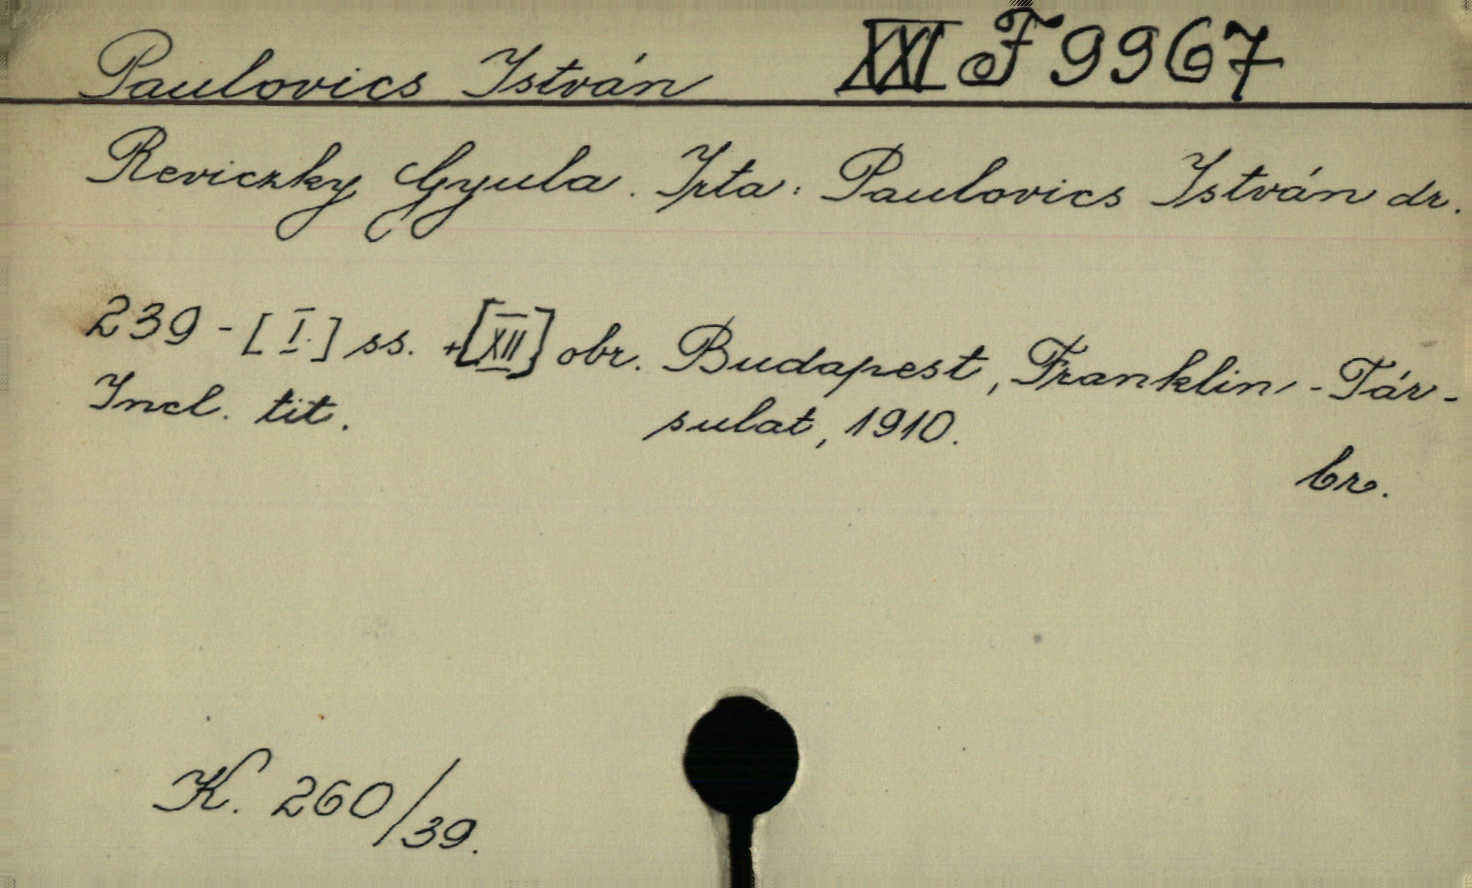 Paulovics István XXI F 9967
Reviczky Gyula. Irta: Paulovics István dr.
239-[I.] ss. +[XII] obr. Budapest, Franklin-Tár-
Incl. tit. sulat, 1910.
br.
K. 260/39.